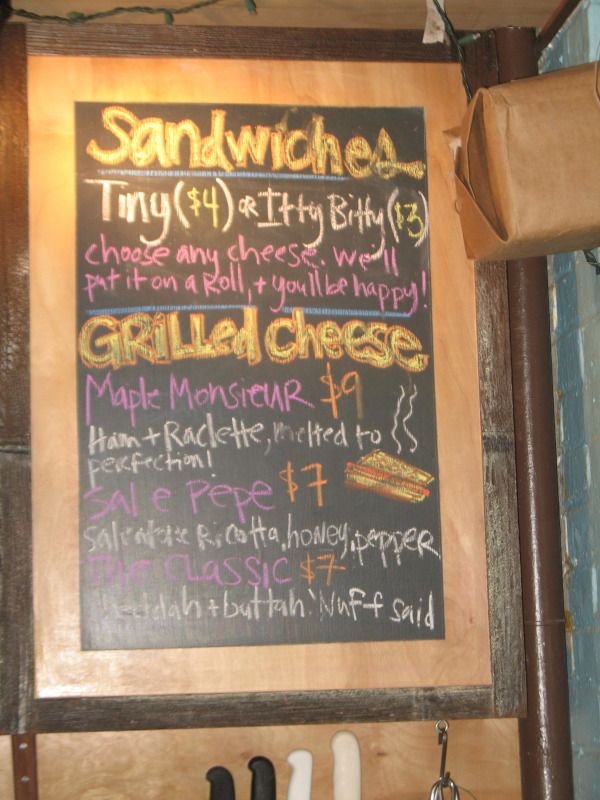 Sandwiches
Tiny ($4) or Itty Bitty ($3)
choose any cheese. We'll
put it on a Roll, + you'll be happy!
GRilled cheese
Maple Monsieur $9
Ham + Raclette, melted to
perfection!
Sal e Pepe $7
Salvatore Ricotta, honey, pepper
The Classic $7
cheddah + buttah. 'Nuff said